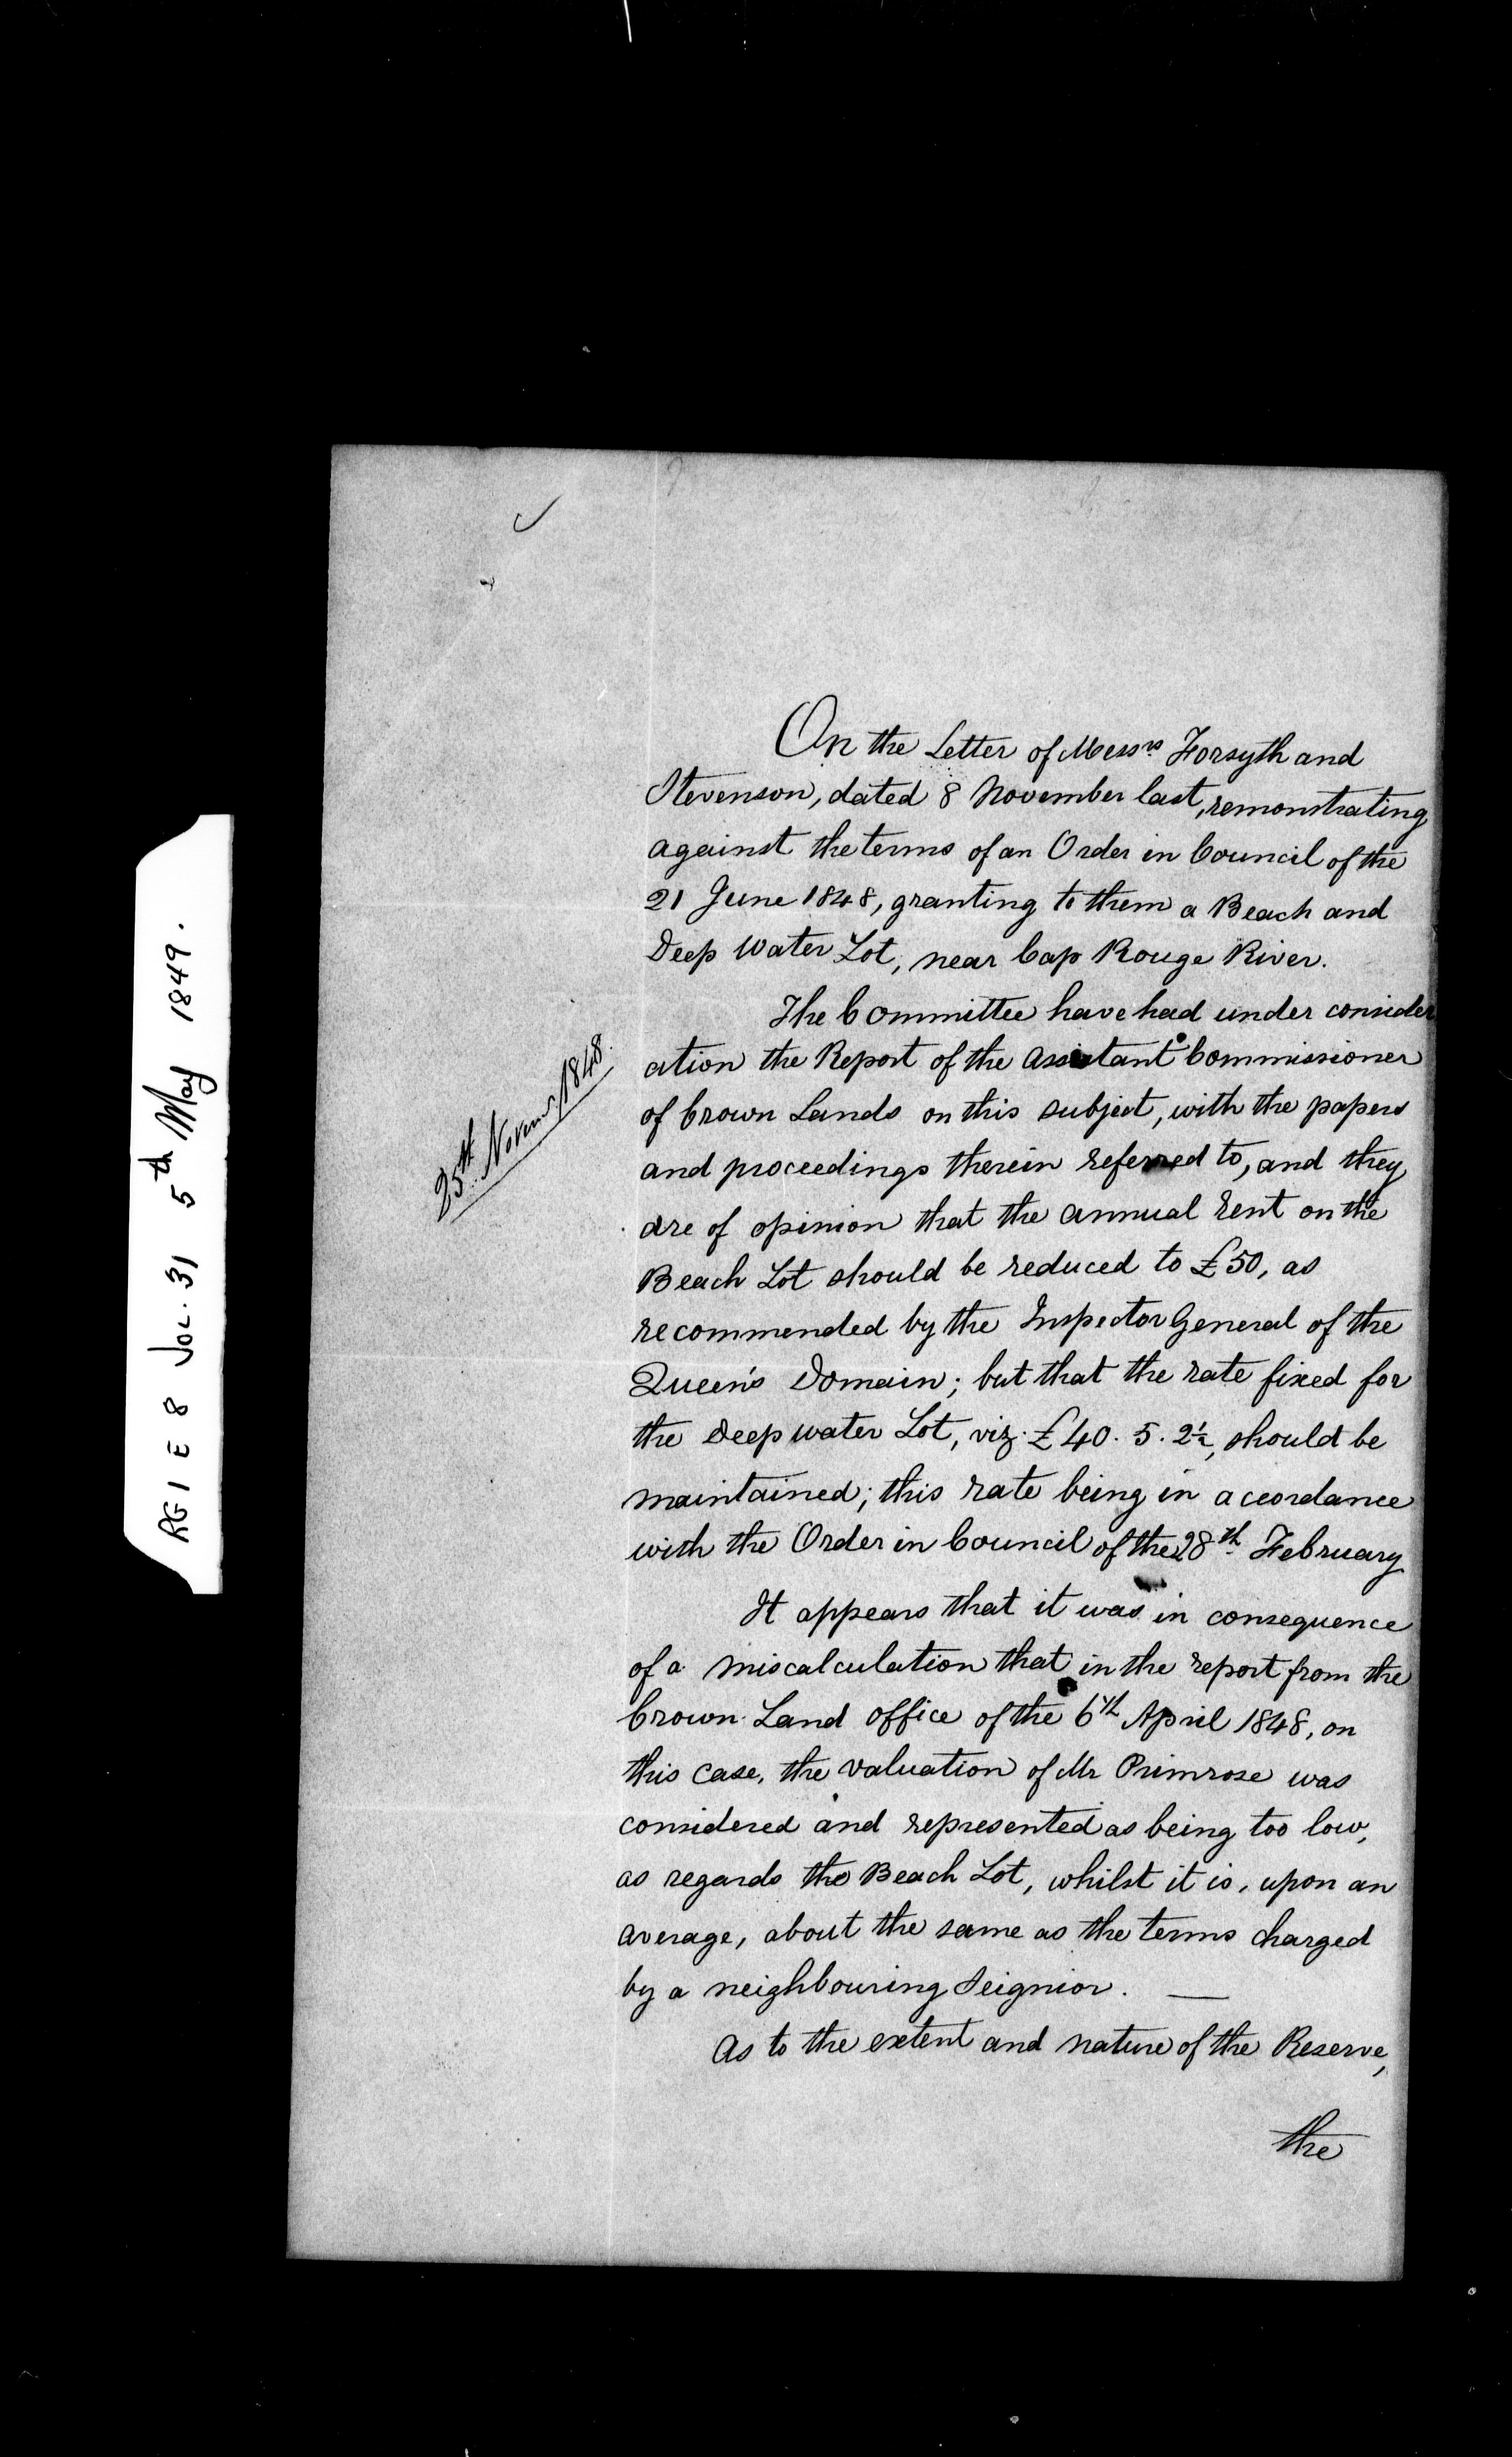 RG 1 E 8 Vol. 31 5th May 1849.
On the Letter of Messrs Forsyth and
Stevenson, dated 8 November last, remonstrating
against the terms of an Order in Council of the
21 June 1848, granting to them a Beach and
Deep Water Lot, near Cap Rouge River.
The Committee have had under consider
ation the Report of the Assistant Commissioner
25th Novemr 1848.
of Crown Lands on this subject, with the papers
and proceedings therein referred to, and they
are of opinion that the annual rent on the
Beach Lot should be reduced to £50, as
recommended by the Inspector General of the
Queen's Domain; but that the rate fixed for
the Deep water Lot, viz. £40. 5. 2½, should be
maintained; this rate being in accordance
with the Order in Council of the 28th February
It appears that it was in consequence
of a miscalculation that in the report from the
Crown Land office of the 6th April 1848, on
this case, the valuation of Mr Primrose was
considered and represented as being too low,
as regards the Beach Lot, whilst it is, upon an
average, about the same as the terms charged
by a neighbouring Seignior. —
As to the extent and nature of the Reserve,
the